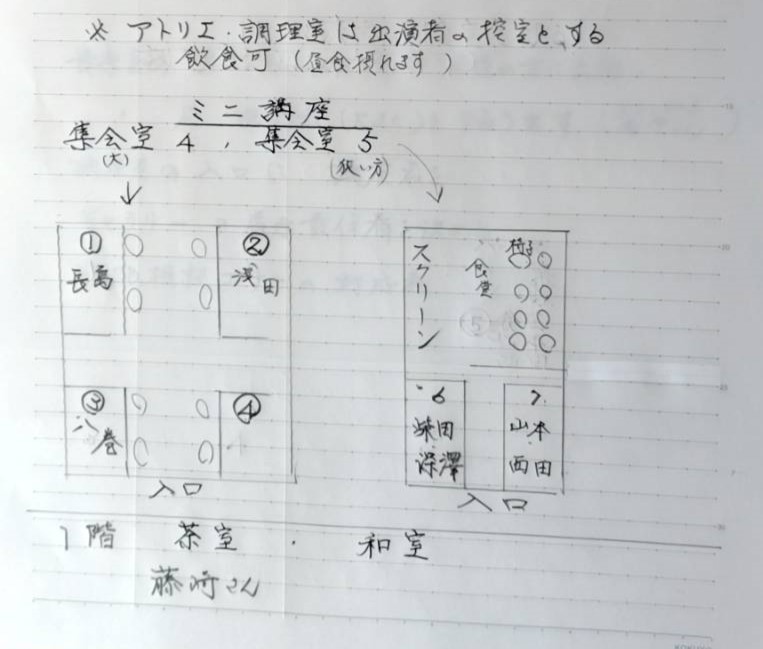 ※ アトリエ・調理室は出演者の控室とする
飲食可（昼食摂れます）
ミニ講座
集会室 4 , 集会室 5
(大)
(狭い方)
① 長島
② 浅田
③ 八巻
④
入口
スクリーン
椅子
食堂
6 柴田
深澤
7. 山本
西田
入口
1階 茶室 ・ 和室
藤崎さん